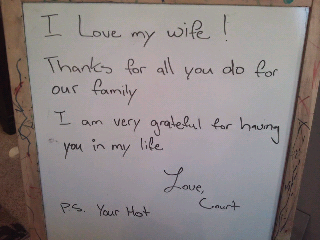 I Love my wife!
Thanks for all you do for
our family
I am very grateful for having
you in my life
Love,
Court
PS. Your Hot